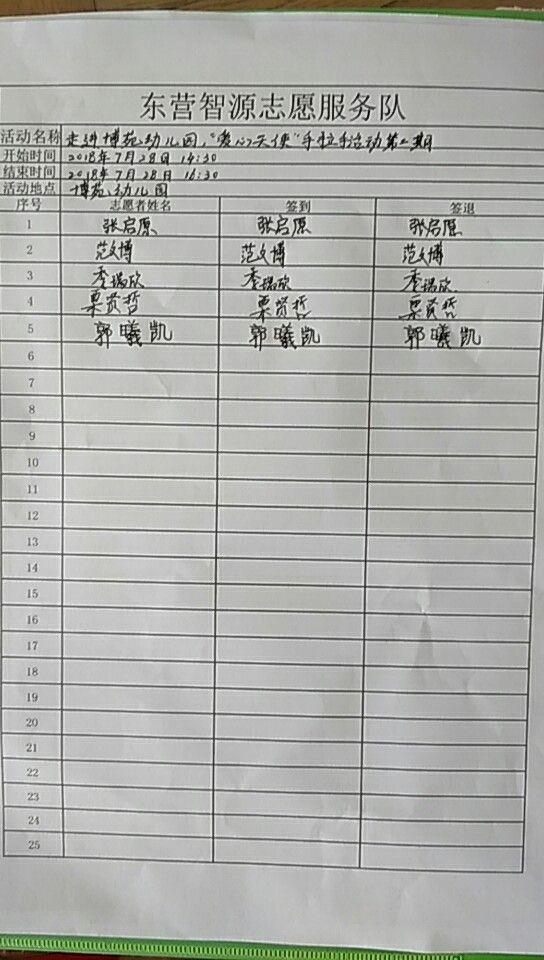 东营智源志愿服务队
活动名称 走进博苑幼儿园,“爱心天使”手拉手活动第二期
开始时间 2018年7月28日 14:30
结束时间 2018年7月28日 16:30
活动地点 博苑幼儿园
序号 志愿者姓名 签到 签退
1 张启原 张启原 张启原
2 范文博 范文博 范文博
3 李瑞欣 李瑞欣 李瑞欣
4 栗贤哲 栗贤哲 栗贤哲
5 郭曦凯 郭曦凯 郭曦凯
6
7
8
9
10
11
12
13
14
15
16
17
18
19
20
21
22
23
24
25